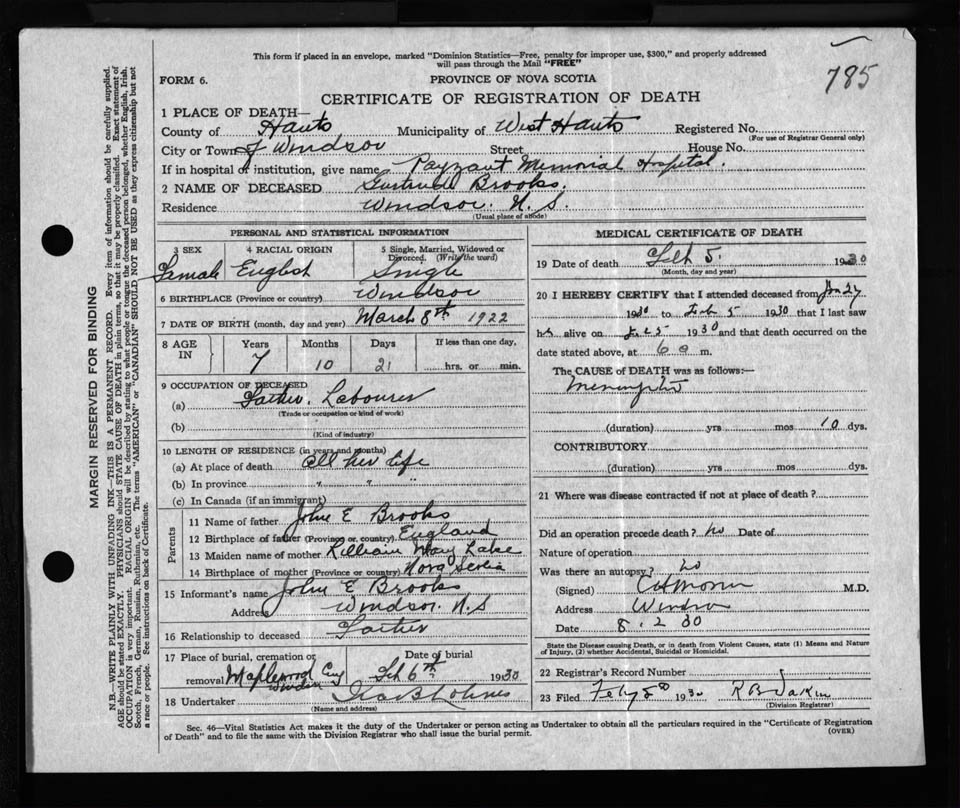 This form if placed in an envelope, marked "Dominion Statistics—Free, penalty for improper use, $300," and properly addressed
will pass through the Mail "FREE"
785
FORM 6.
PROVINCE OF NOVA SCOTIA
CERTIFICATE OF REGISTRATION OF DEATH
1 PLACE OF DEATH—
County of Hants Municipality of West Hants Registered No.
(For use of Registrar General only)
City or Town of Windsor Street House No.
If in hospital or institution, give name Payzant Memorial Hospital.
2 NAME OF DECEASED Brooks.
Residence Windsor. N. S.
(Usual place of abode)
PERSONAL AND STATISTICAL INFORMATION
3 SEX 4 RACIAL ORIGIN 5 Single, Married, Widowed or
Divorced. (Write the word)
Female English Single
6 BIRTHPLACE (Province or country) Windsor
7 DATE OF BIRTH (month, day and year) March 8th 1922
8 AGE
IN
Years Months Days If less than one day,
7 10 21 hrs. or min.
9 OCCUPATION OF DECEASED
(a) Father. Labourer
(Trade or occupation or kind of work)
(b)
(Kind of industry)
10 LENGTH OF RESIDENCE (in years and months)
(a) At place of death all her life
(b) In province " " "
(c) In Canada (if an immigrant)
Parents
11 Name of father John E Brooks
12 Birthplace of father (Province or country) England
13 Maiden name of mother Lillian May Lake
14 Birthplace of mother (Province or country) Nova Scotia
15 Informant's name John E Brooks
Address Windsor. N.S
16 Relationship to deceased Father
17 Place of burial, cremation or Date of burial
removal Maplewood Cmy Windsor Feb 6th 1930
18 Undertaker
(Name and address)
MEDICAL CERTIFICATE OF DEATH
19 Date of death Feb 5. 1930
(Month, day and year)
20 I HEREBY CERTIFY that I attended deceased from Jan 27
1930 to Feb 5 1930 that I last saw
her alive on 1930 and that death occurred on the
date stated above, at 6 a m.
The CAUSE OF DEATH was as follows:—
Meningitis
(duration) yrs mos 10 dys.
CONTRIBUTORY
(duration) yrs mos. dys.
21 Where was disease contracted if not at place of death?
Did an operation precede death? No Date of
Nature of operation
Was there an autopsy? No
(Signed) M.D.
Address Windsor
Date 8. 2 30
State the Disease causing Death, or in death from Violent Causes, state (1) Means and Nature
of Injury, (2) whether Accidental, Suicidal or Homicidal.
22 Registrar's Record Number
23 Filed Feby 8th 1930
(Division Registrar)
Sec. 46—Vital Statistics Act makes it the duty of the Undertaker or person acting as Undertaker to obtain all the particulars required in the "Certificate of Registration
of Death" and to file the same with the Division Registrar who shall issue the burial permit.
(OVER)
MARGIN RESERVED FOR BINDING
N.B.—WRITE PLAINLY WITH UNFADING INK—THIS IS A PERMANENT RECORD. Every item of information should be carefully supplied.
AGE should be stated EXACTLY. PHYSICIANS should STATE CAUSE OF DEATH in plain terms, so that it may be properly classified. Exact statement of
OCCUPATION is very important. RACIAL ORIGIN will be described by stating to what people or tongue the deceased person belonged, whether English, Irish,
Scotch, French, German, Russian, Ruthenian, etc. The terms "AMERICAN" or "CANADIAN" SHOULD NOT BE USED as they express citizenship but not
a race or people. See instructions on back of Certificate.